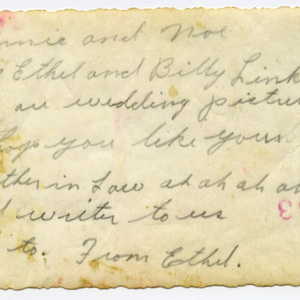 nnie and Noe
Ethel and Billy Link
an wedding pictu
hop you like your
ther in Law ah ah ah a
writer to us
to. From Ethel.